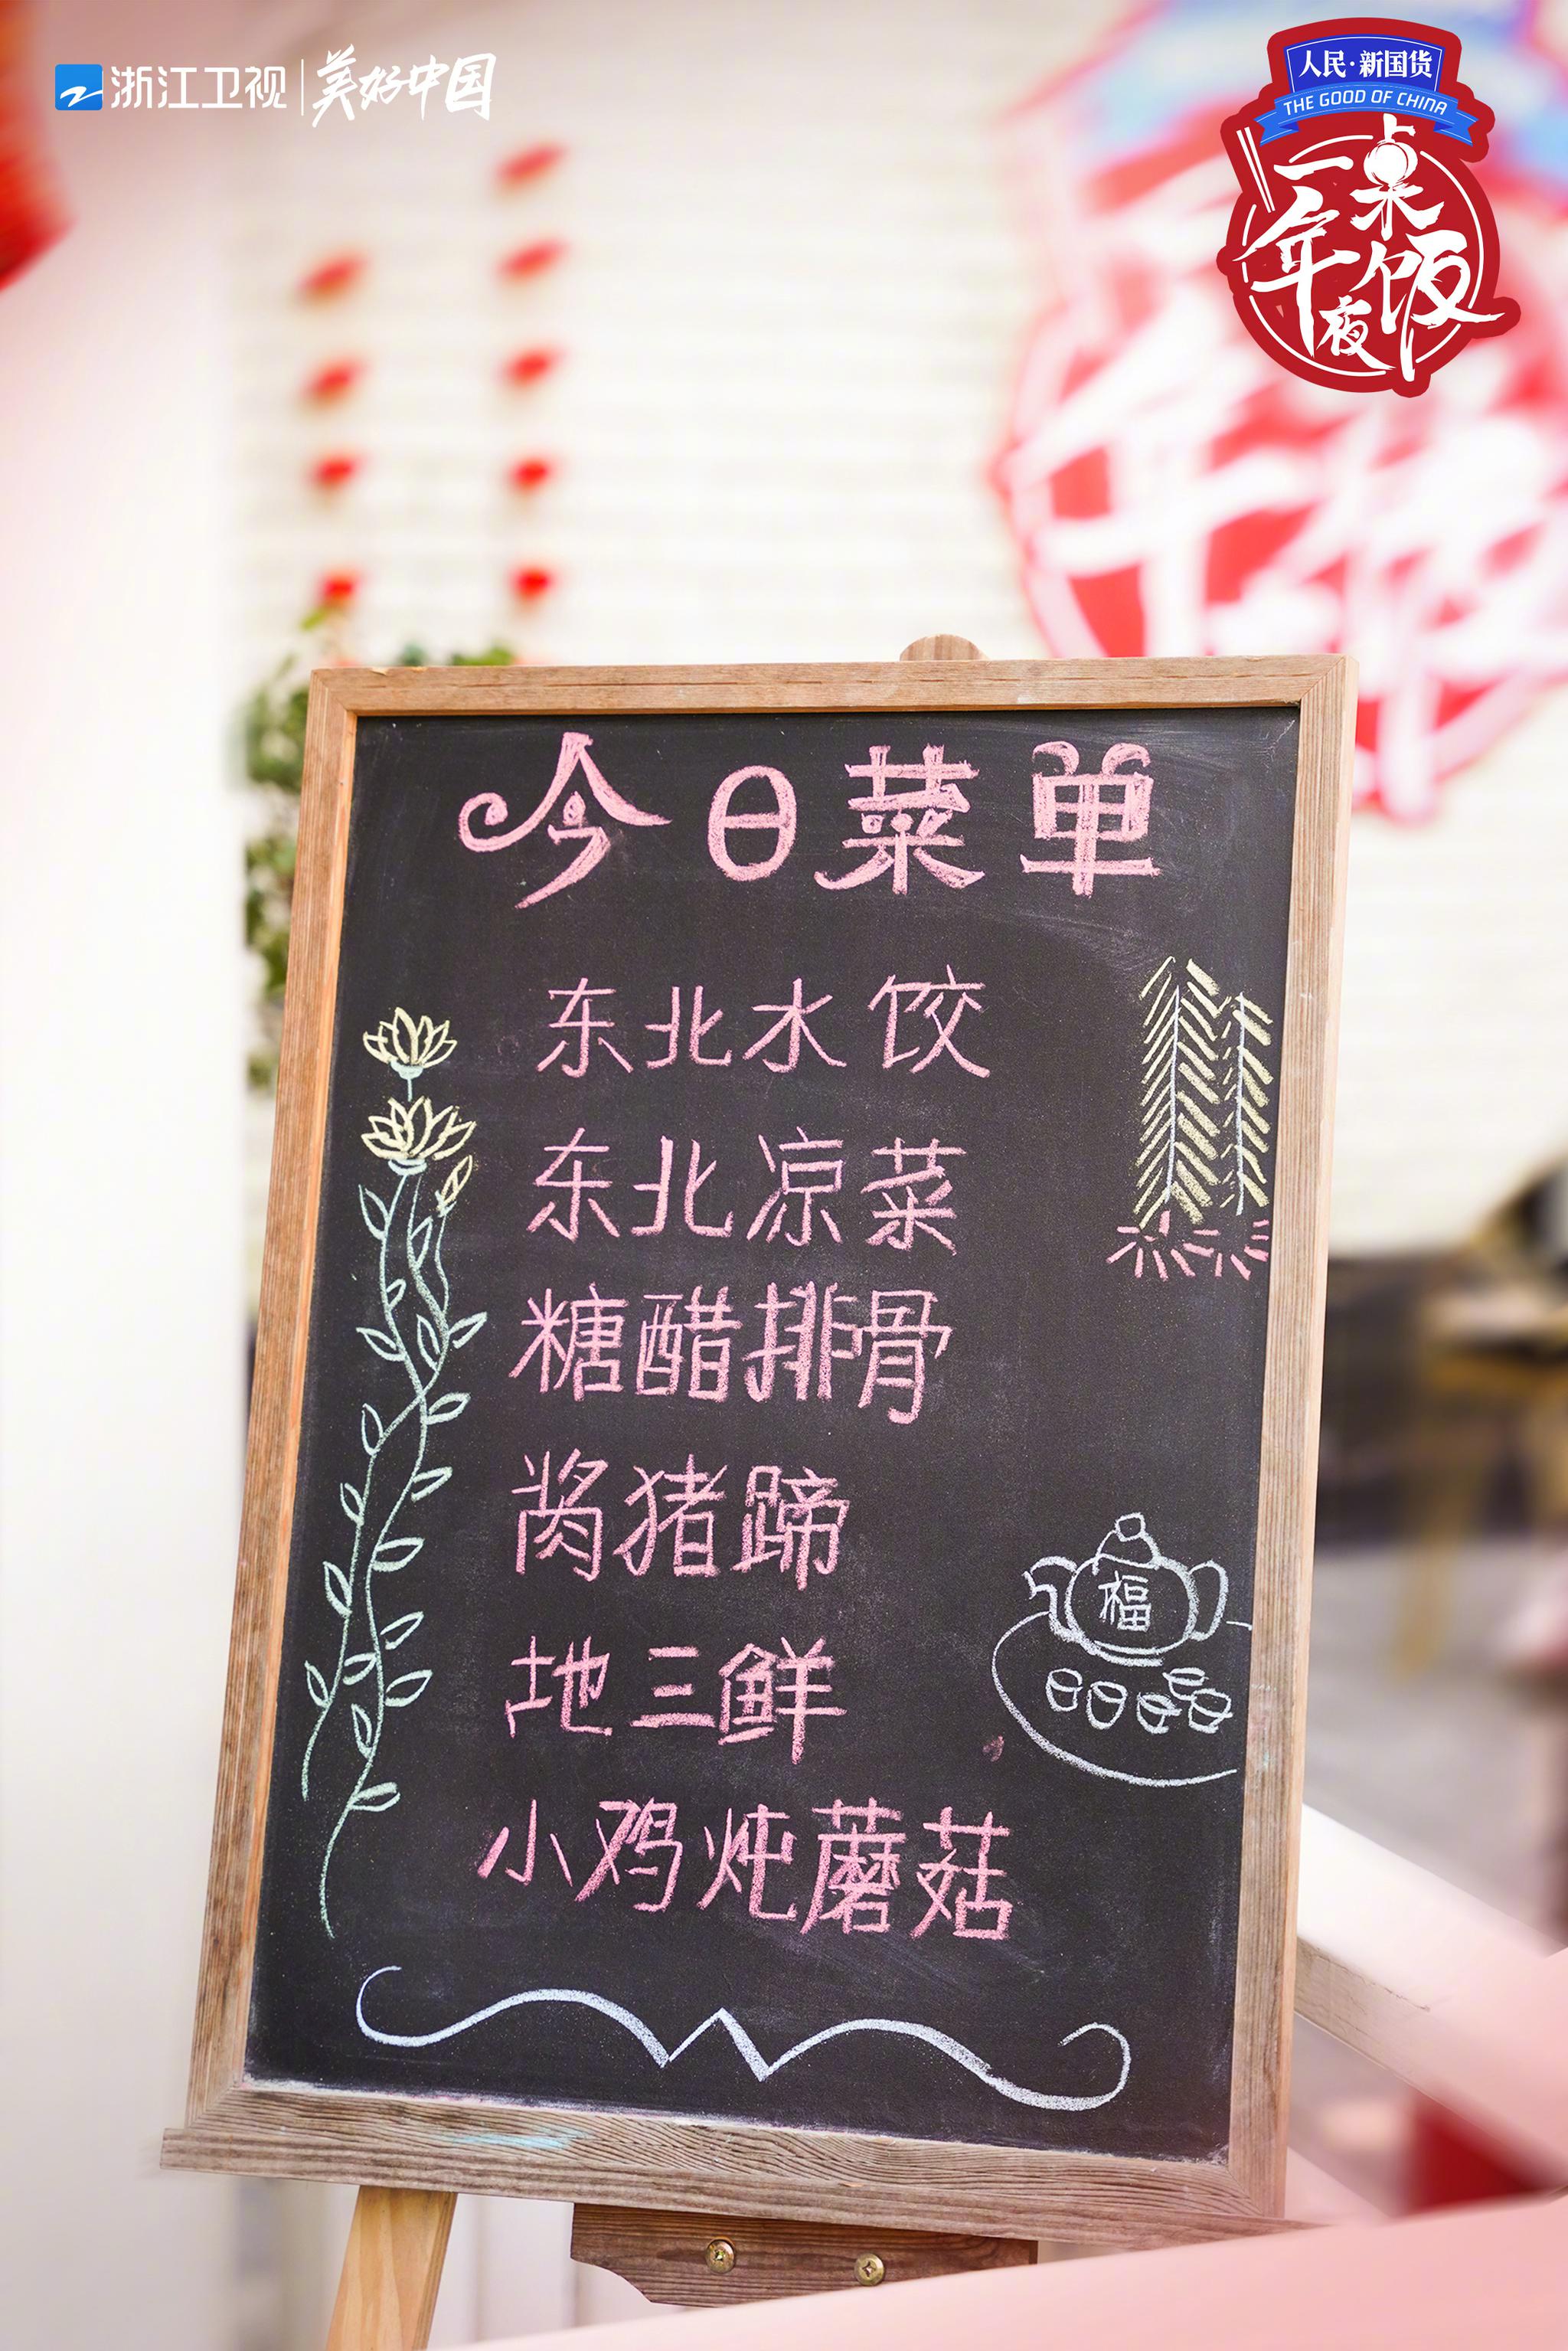 浙江卫视 美好中国
人民·新国货
THE GOOD OF CHINA
一桌
年夜饭
今日菜单
东北水饺
东北凉菜
糖醋排骨
酱猪蹄
福
地三鲜
小鸡炖蘑菇